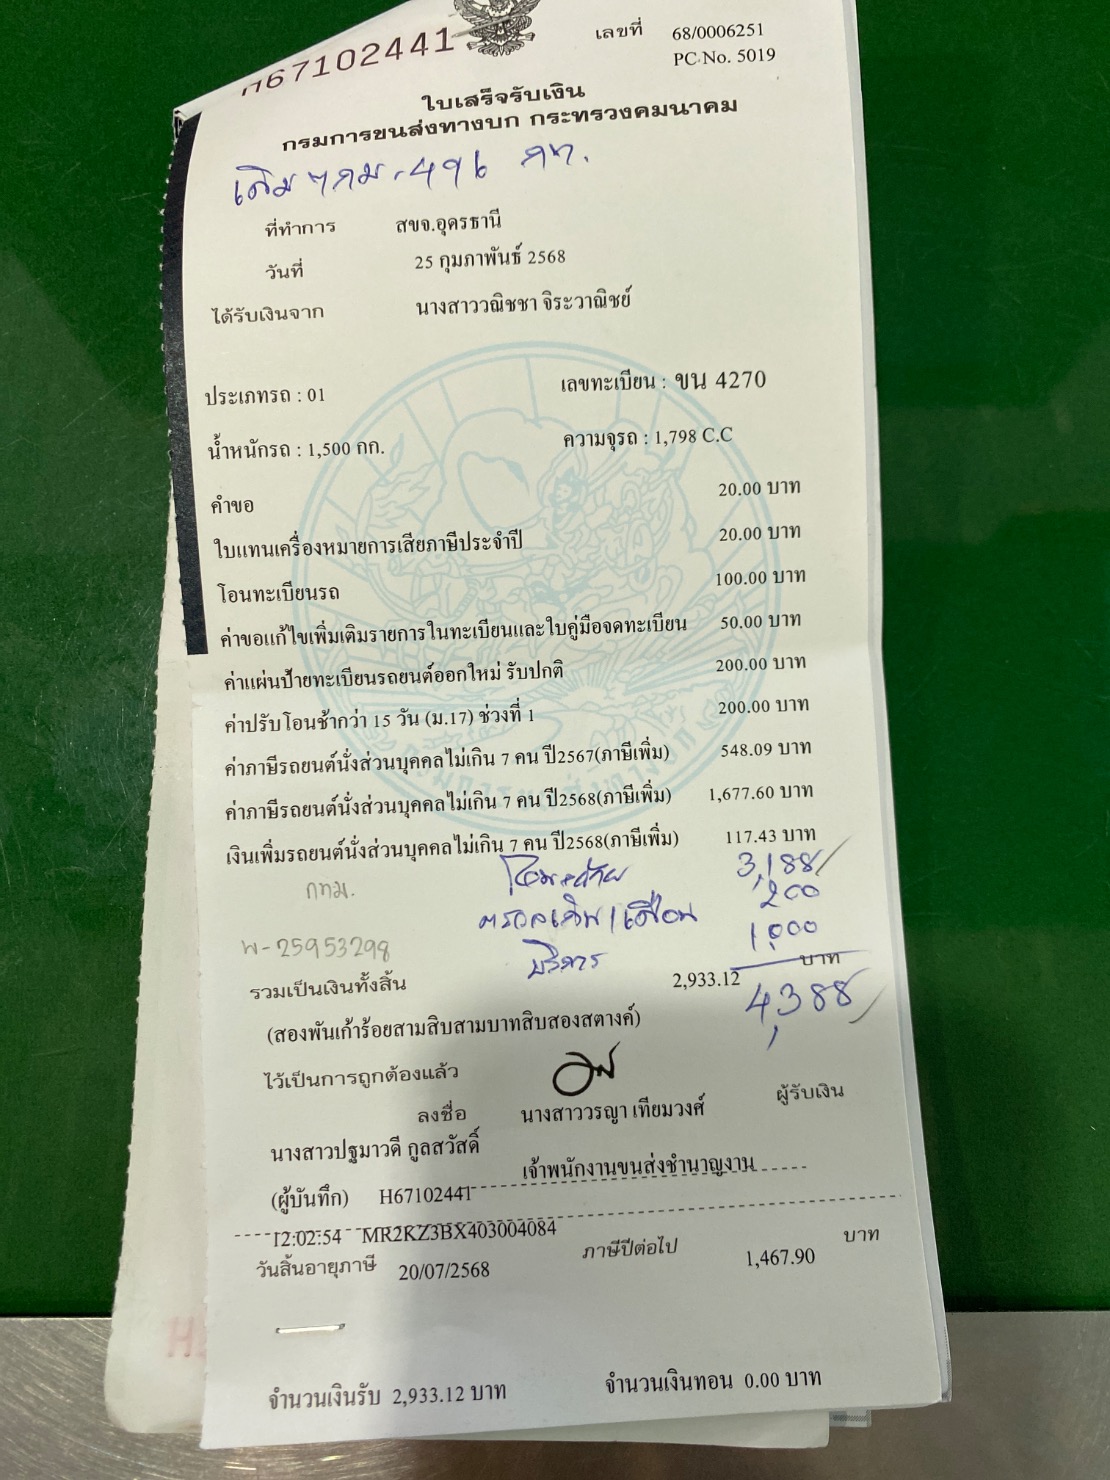 H67102441
เลขที่ 68/0006251
PC No. 5019
ใบเสร็จรับเงิน
กรมการขนส่งทางบก กระทรวงคมนาคม
เดิม กท.
ที่ทำการ สขจ.อุดรธานี
วันที่ 25 กุมภาพันธ์ 2568
ได้รับเงินจาก นางสาววณิชชา จิระวาณิชย์
ประเภทรถ : 01 เลขทะเบียน : ขน 4270
น้ำหนักรถ : 1,500 กก. ความจุรถ : 1,798 C.C
คำขอ 20.00 บาท
ใบแทนเครื่องหมายการเสียภาษีประจำปี 20.00 บาท
โอนทะเบียนรถ 100.00 บาท
ค่าขอแก้ไขเพิ่มเติมรายการในทะเบียนและใบคู่มือจดทะเบียน 50.00 บาท
ค่าแผ่นป้ายทะเบียนรถยนต์ออกใหม่ รับปกติ 200.00 บาท
ค่าปรับโอนช้ากว่า 15 วัน (ม.17) ช่วงที่ 1 200.00 บาท
ค่าภาษีรถยนต์นั่งส่วนบุคคลไม่เกิน 7 คน ปี2567(ภาษีเพิ่ม) 548.09 บาท
ค่าภาษีรถยนต์นั่งส่วนบุคคลไม่เกิน 7 คน ปี2568(ภาษีเพิ่ม) 1,677.60 บาท
เงินเพิ่มรถยนต์นั่งส่วนบุคคลไม่เกิน 7 คน ปี2568(ภาษีเพิ่ม) 117.43 บาท
กทม. 3,188/
200
บริการ 1,000
W-25953298
รวมเป็นเงินทั้งสิ้น 2,933.12 บาท
4,388/
(สองพันเก้าร้อยสามสิบสามบาทสิบสองสตางค์)
ไว้เป็นการถูกต้องแล้ว
ลงชื่อ นางสาววรญา เทียมวงศ์ ผู้รับเงิน
นางสาวปฐมาวดี กูลสวัสดิ์ เจ้าพนักงานขนส่งชำนาญงาน
(ผู้บันทึก) H67102441
12:02:54 MR2KZ3BX403004084
วันสิ้นอายุภาษี 20/07/2568 ภาษีปีต่อไป 1,467.90 บาท
จำนวนเงินรับ 2,933.12 บาท จำนวนเงินทอน 0.00 บาท